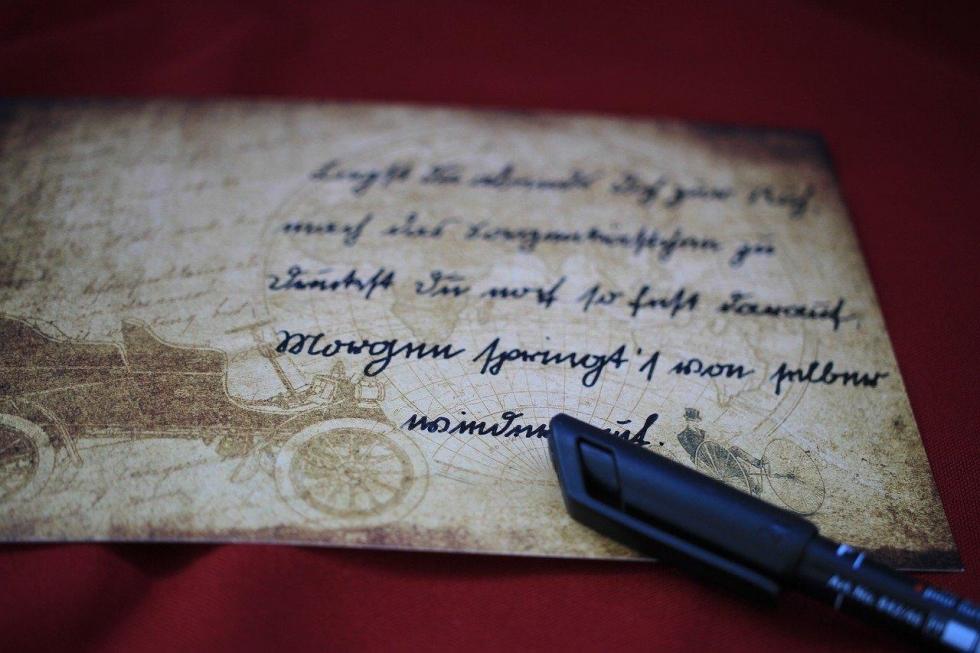 Legst Du abends Dich zur Ruh,
mach das Sorgenkistchen zu
drücktest Du noch so fest darauf,
Morgen springt's von selber
wieder auf.
Art.No.